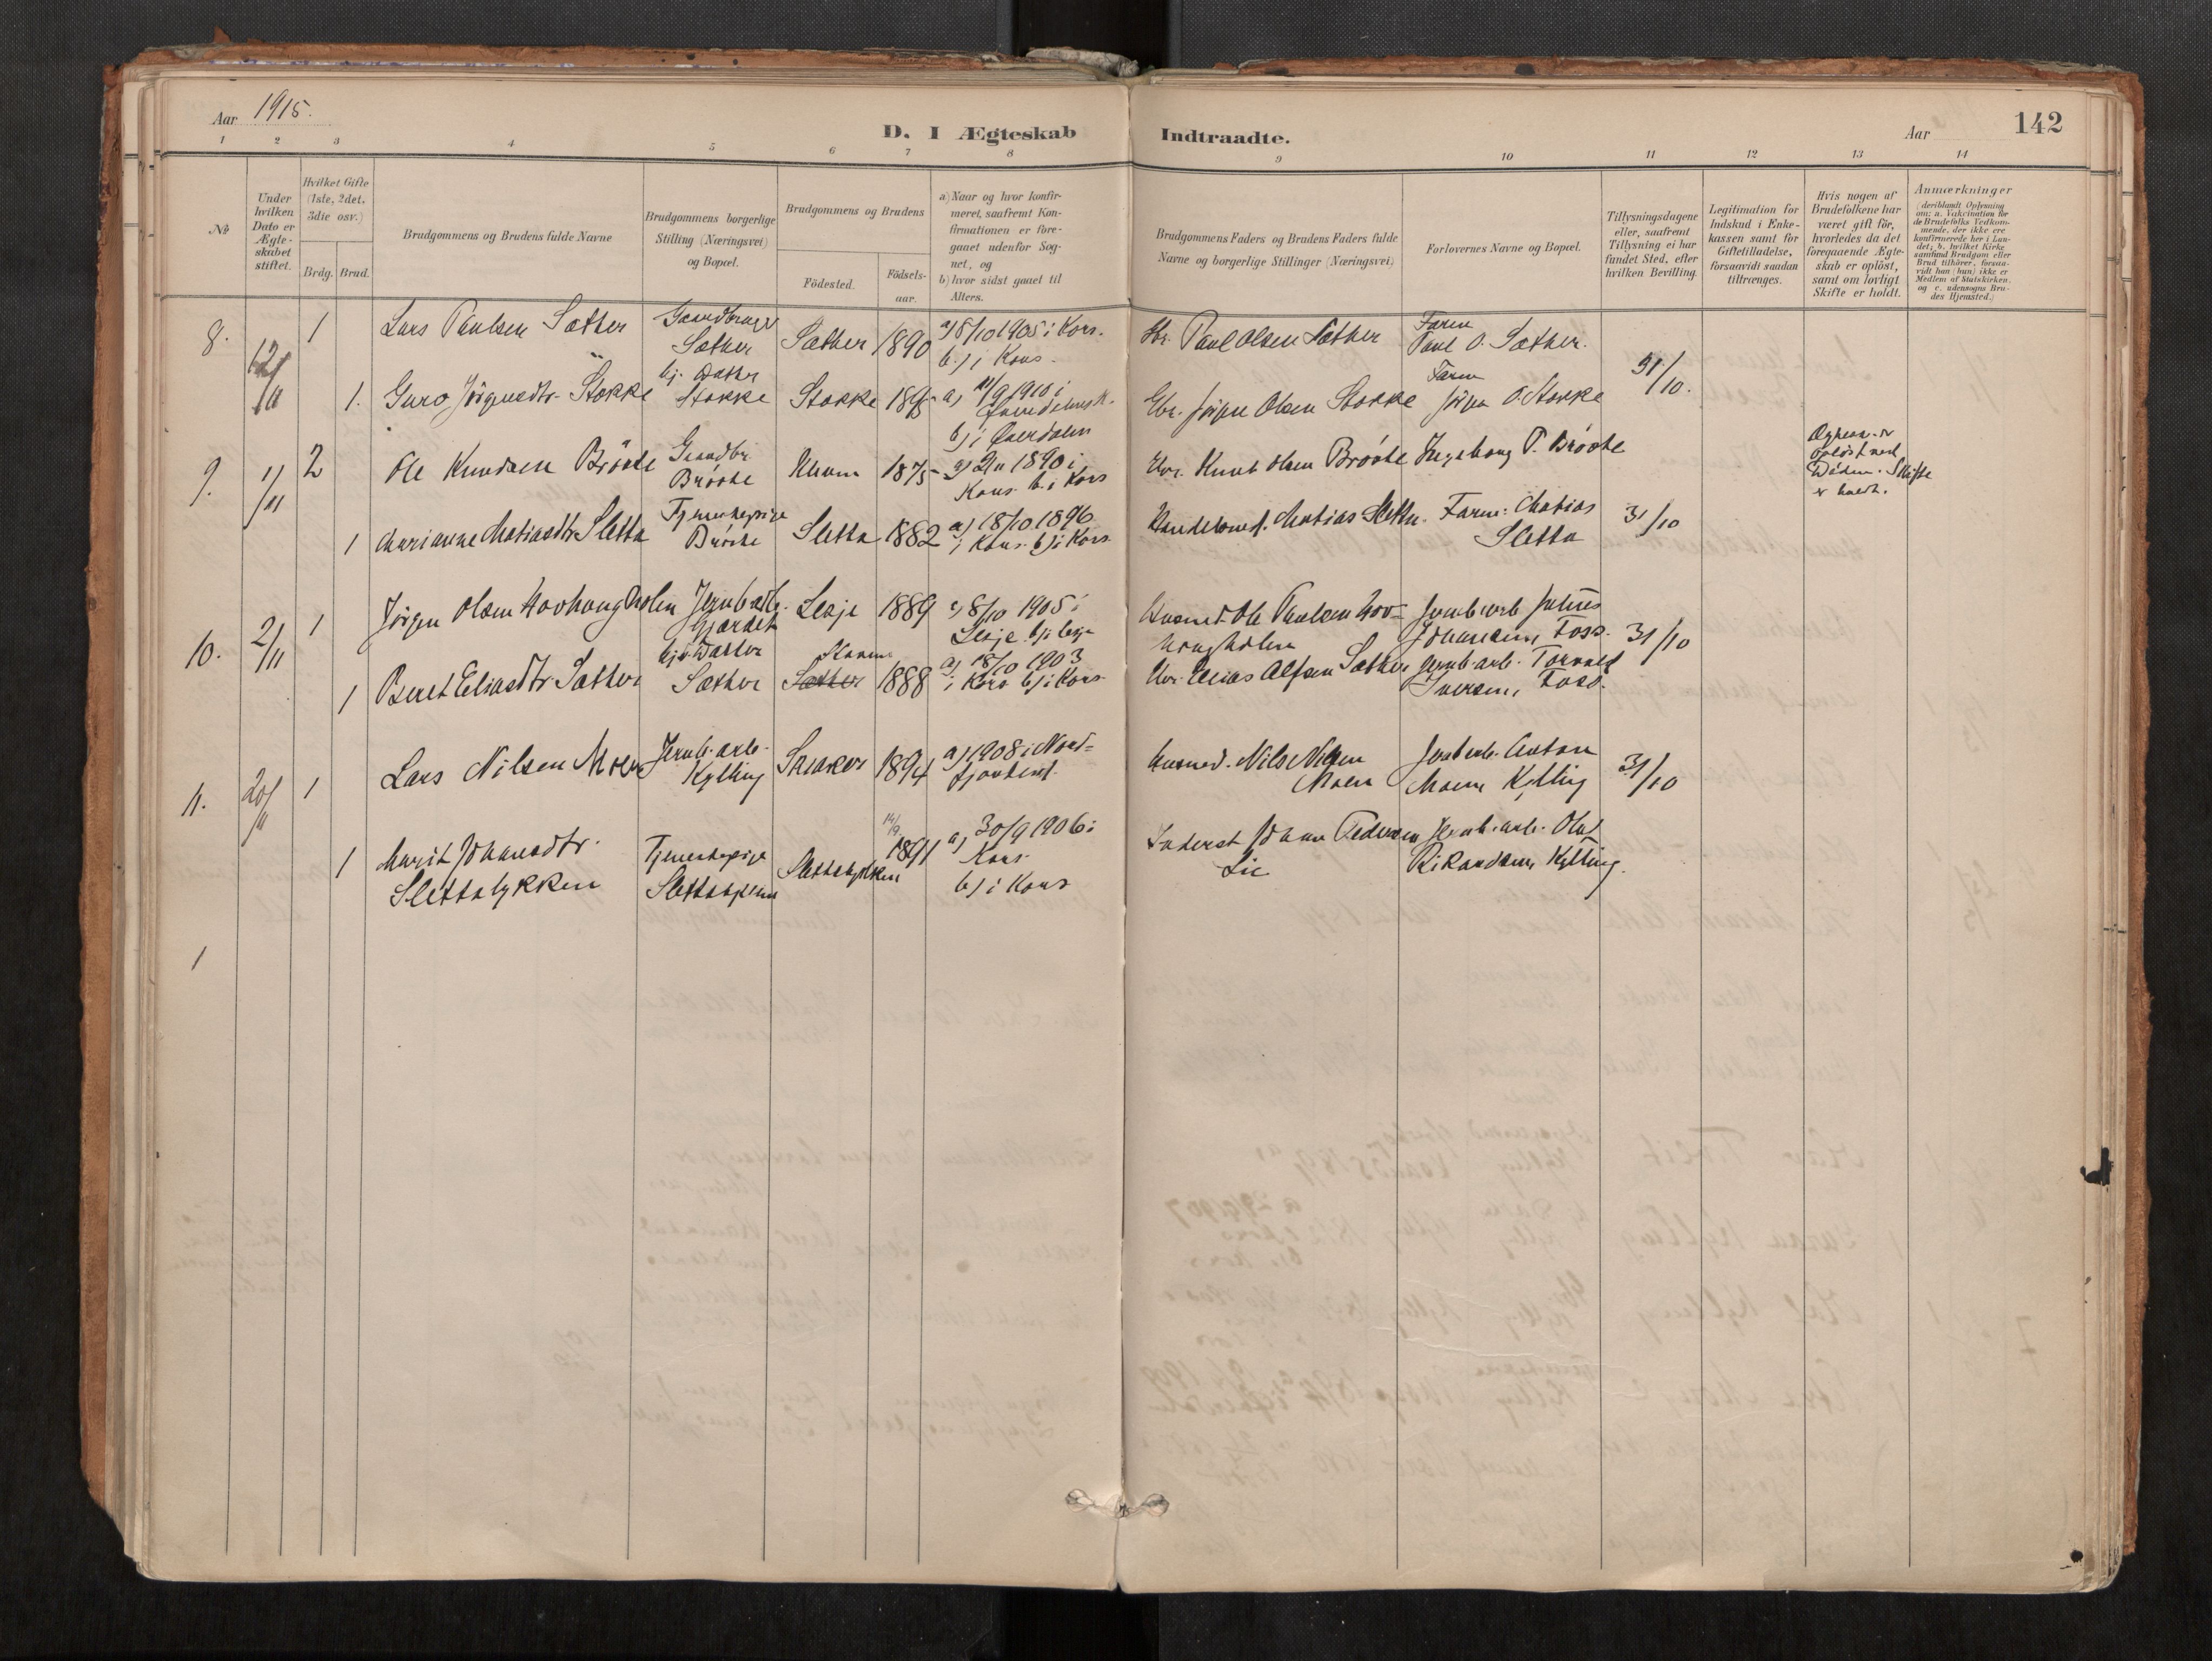 Aar 1915.
D. I Ægteskab
Indtraadte.
Aar
142
1 2 3 4 5 6 7 8 9 10 11 12 13 14
No
Under
hvilken
Dato er
Ægte-
skabet
stiftet.
Hvilket Gifte
(1ste, 2det,
3die osv.)
Brdg. Brud.
Brudgommens og Brudens fulde Navne
Brudgommens borgerlige
Stilling (Næringsvei)
og Bopæl.
Brudgommens og Brudens
Födested.
Födsels-
aar.
a) Naar og hvor konfir-
meret, saafremt Kon-
firmationen er fore-
gaaet udenfor Sog-
net, og
b) hvor sidst gaaet til
Alters.
Brudgommens Faders og Brudens Faders fulde
Navne og borgerlige Stillinger (Næringsvei)
Forlovernes Navne og Bopæl.
Tillysningsdagene
eller, saafremt
Tillysning ei har
fundet Sted, efter
hvilken Bevilling.
Legitimation for
Indskud i Enke-
kassen samt for
Giftetilladelse,
forsaavidt saadan
tiltrænges.
Hvis nogen af
Brudefolkene har
været gift för,
hvorledes da det
foregaaende Ægte-
skab er oplöst,
samt om lovligt
Skifte er holdt.
Anmærkninger
(deriblandt Oplysning
om: a. Vakcination for
de Brudefolks Vedkom-
mende, der ikke ere
konfirmerede her i Lan-
det; b. hvilket Kirke
samfund Brudgom eller
Brud tilhörer, forsaa-
vidt han (hun) ikke er
Medlem af Statskirken,
og c. udensogns Bru-
des Hjemsted.)
8.
1 Lars Paulsen Sæther
Gaardbruger
Sæther
Sæther 1890
a) 8/10 1905 i Kors.
b.) i Kors.
Gbr. Paul Olsen Sæther
Faren
Paul O. Sæther.
1. Guro Jörgensdtr. Stokke
Stokke
Stokke 1895
a) 11/9 1910 i
b) i Överdalen
Gbr. Jörgen Olsen Stokke
Faren
Jörgen O. Stokke
31/10.
9. 1/11 2
Ole Knudsen Bröste
Gaardbr.
Bröste
1875
a) 1890 i
Kors. b. i Kors
Gbr. Knut Olsen Bröste
Ingeborg P. Bröste
oplöst ved
Döden. Skifte
er holdt.
1 Marianne Matiasdtr. Sletta
Tjenestepige
Bröste
Sletta 1882
a) 18/10 1896
i Kors b) i Kors
Matias Sletta.
Faren: Matias
Sletta
31/10
10. 2/11 1
Jörgen Olsen Hovhaugholen
Jernb. arb.
Gjærdet
Lesje 1889
a) 8/10 1905 i
Lesje b) i Lesje
Husmd. Ole Paulsen Hov-
haugholen
Jernb. arb.
Johansen, Foss.
31/10
1 Beret Eliasdtr. Sæther
hj.v. Datter
Sæther
Sæther 1888
a) 18/10 1903
i Kors b) i Kors
Gbr. Elias Alfsen Sæther
Jernb. arb. Torvald
Iversen, Foss.
11. 20/11 1
Lars Nilsen Moen
Jernb. arb.
Kylling
1894
a) 1908 i Nord-
Husmd. Nils Nilsen
Moen
Jernb arb. Anton
Moen, Kylling
31/10
14/9
1 Marit Johansdtr.
Slettalykken
Tjenestepige
Slettalykken
Slettalykken
1891
a) 30/9 1906 i
Kors
b) i Kors
Inderst Johan Pedersen
Lie
Jernb. arb. Olaf
Rikardsen, Kylling.
1